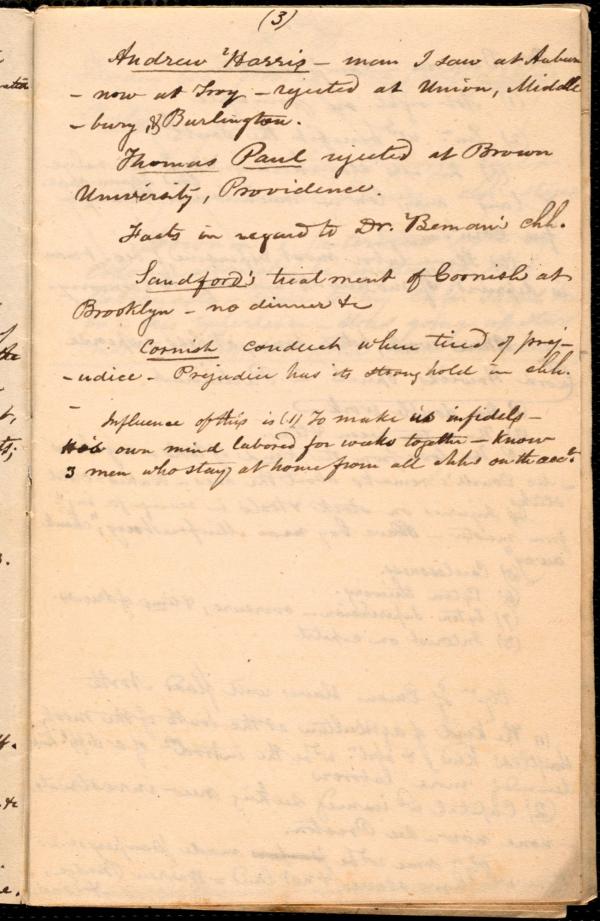 (3)
Andrew Harris – man I saw at Auburn
– now at Troy – rejected at Union, Middle
– bury, & Burlington.
Thomas Paul rejected at Brown
University, Providence.
Facts in regard to Dr. Beman's chh.
Sandford's treatment of Cornish at
Brooklyn – no dinner &c
Cornish conduct when tired of prej–
–udice – Prejudice has its strong hold in chh.
–
Influence of this is (1) To make us infidels –
His own mind labored for weeks together – know
3 men who stay at home from all chhs on the acct.